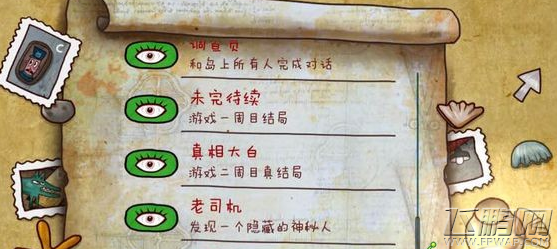 调查员
和岛上所有人完成对话
未完待续
游戏一周目结局
真相大白
游戏二周目真结局
老司机
发现一个隐藏的神秘人
C
飞鹏网